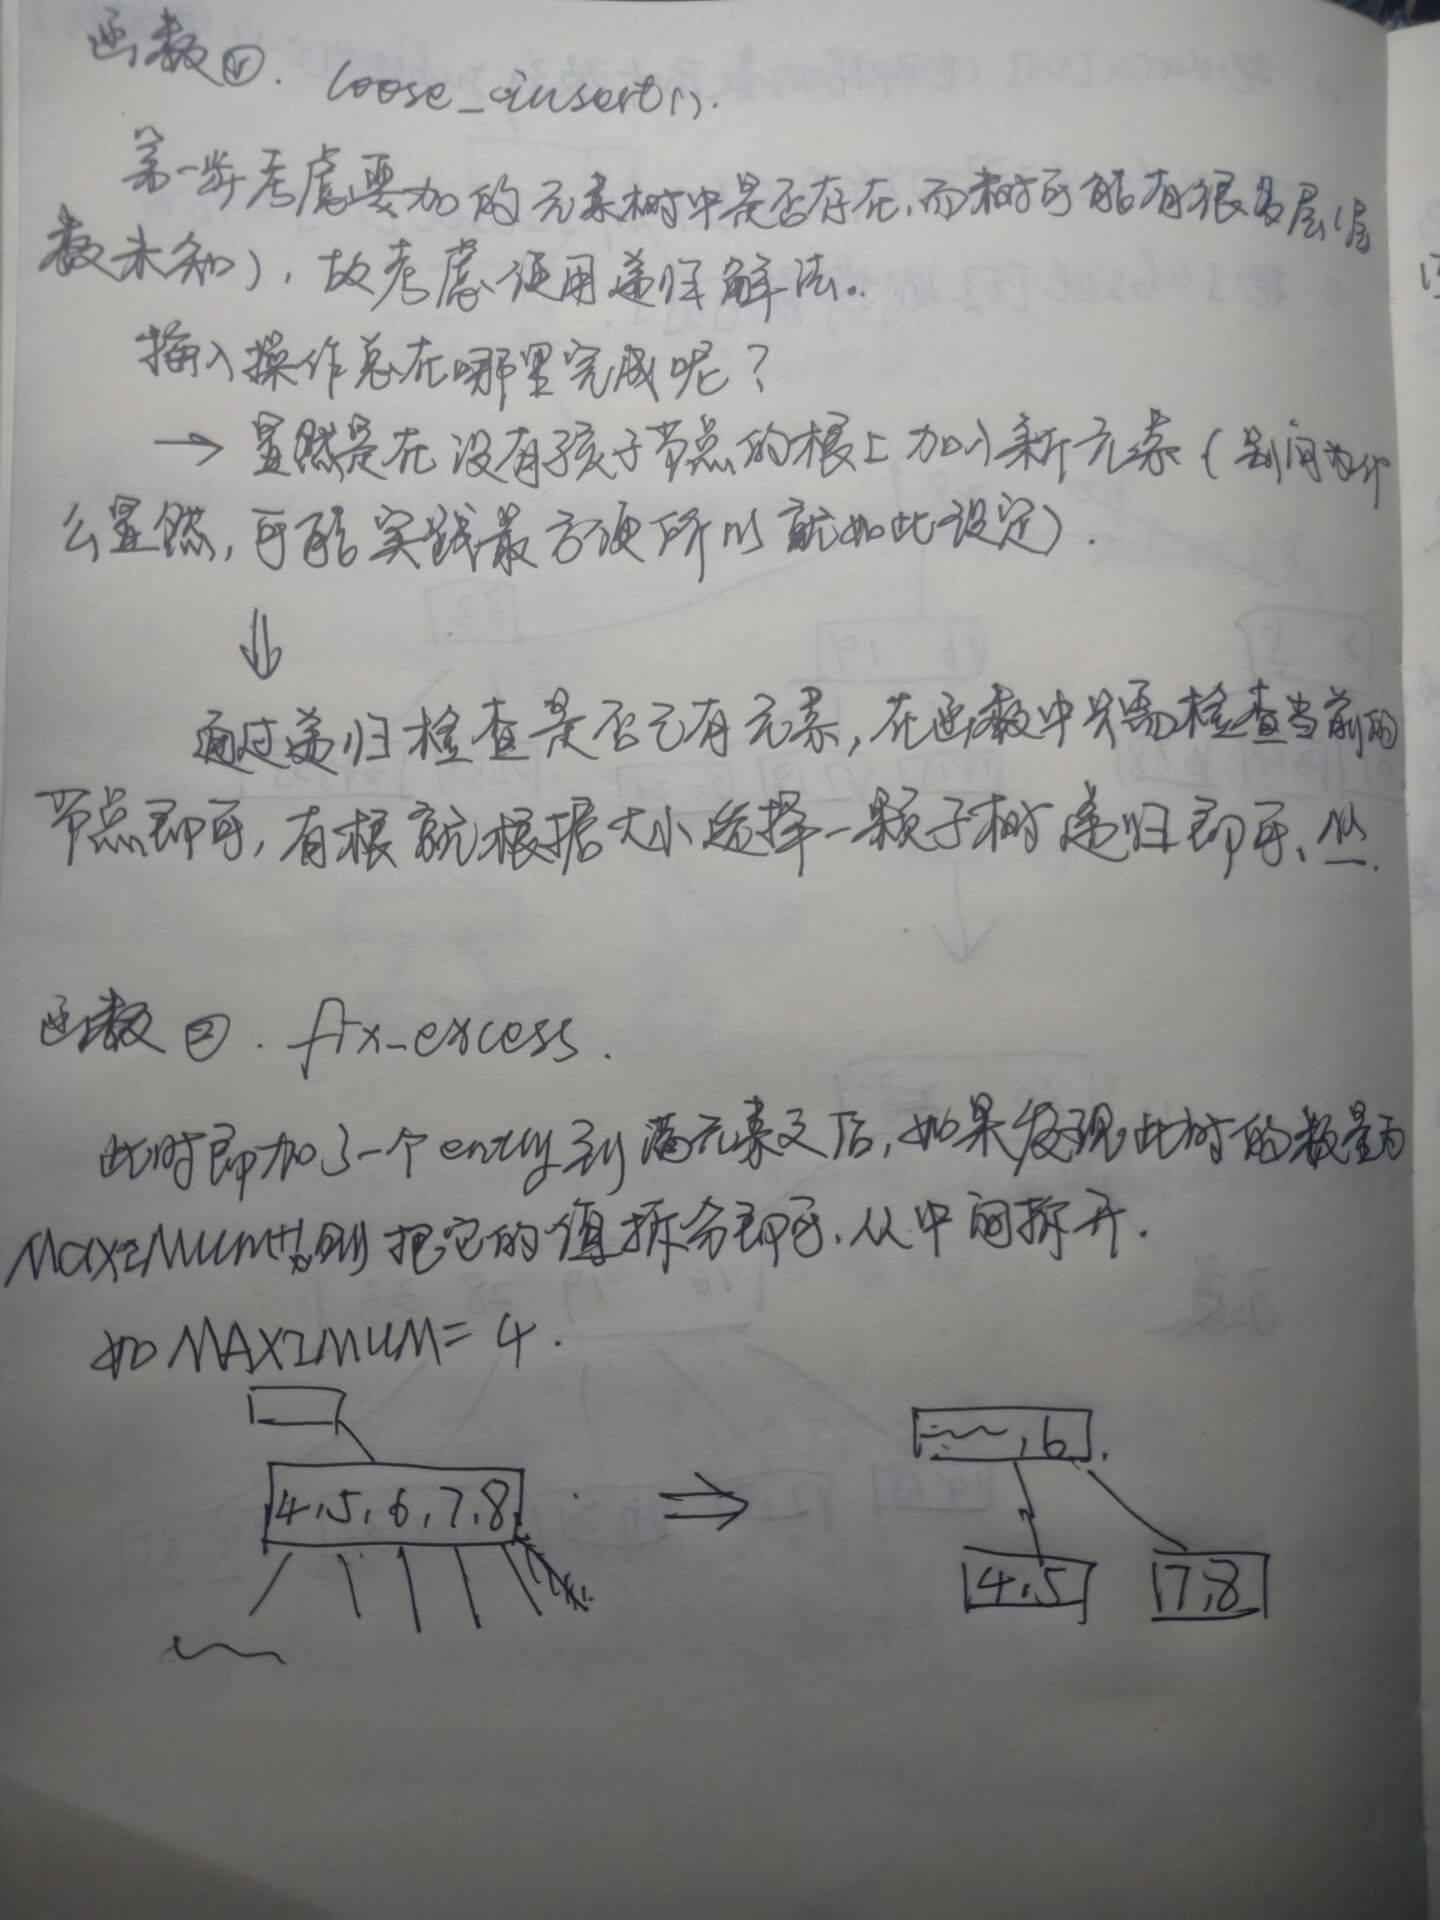 函数①. loose_insert().
第一步考虑要加的元素树中是否存在,而树可能有很多层(层
数未知),故考虑使用递归解法.
插入操作总在哪里完成呢?
→ 显然是在没有孩子节点的根上加入新元素(别问为什
么显然,可能实践最方便所以就如此设定).
⇓
通过递归检查是否已有元素,在函数中只需检查当前的
节点即可,有根就根据大小选择一颗子树递归即可、
函数②. fix_excess.
此时即加了一个entry到满元素之后,如果发现此时的数量为
MAXIMUM+1,则把它的值拆分即可.从中间拆开.
如MAXIMUM=4.
,6
4,5,6,7,8 ⇒
4,5 7,8